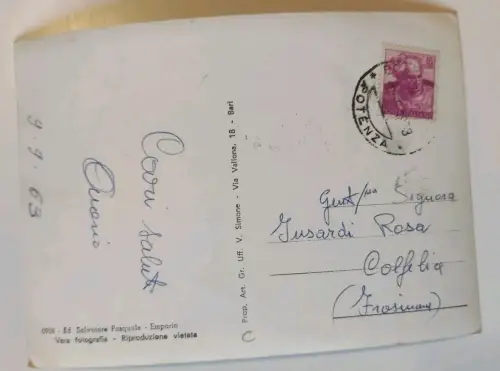 9-9-63
Cari saluti
6958 - Ed. Salvatore Pasquale - Emporio
Vera fotografia - Riproduzione vietata
Prop. Art. Gr. Uff. V. Simone - Via Vallona, 18 - Bari
POTENZA
Gent/ma Signora
Insardi Rosa
Colfelia
(Frosinone)
C